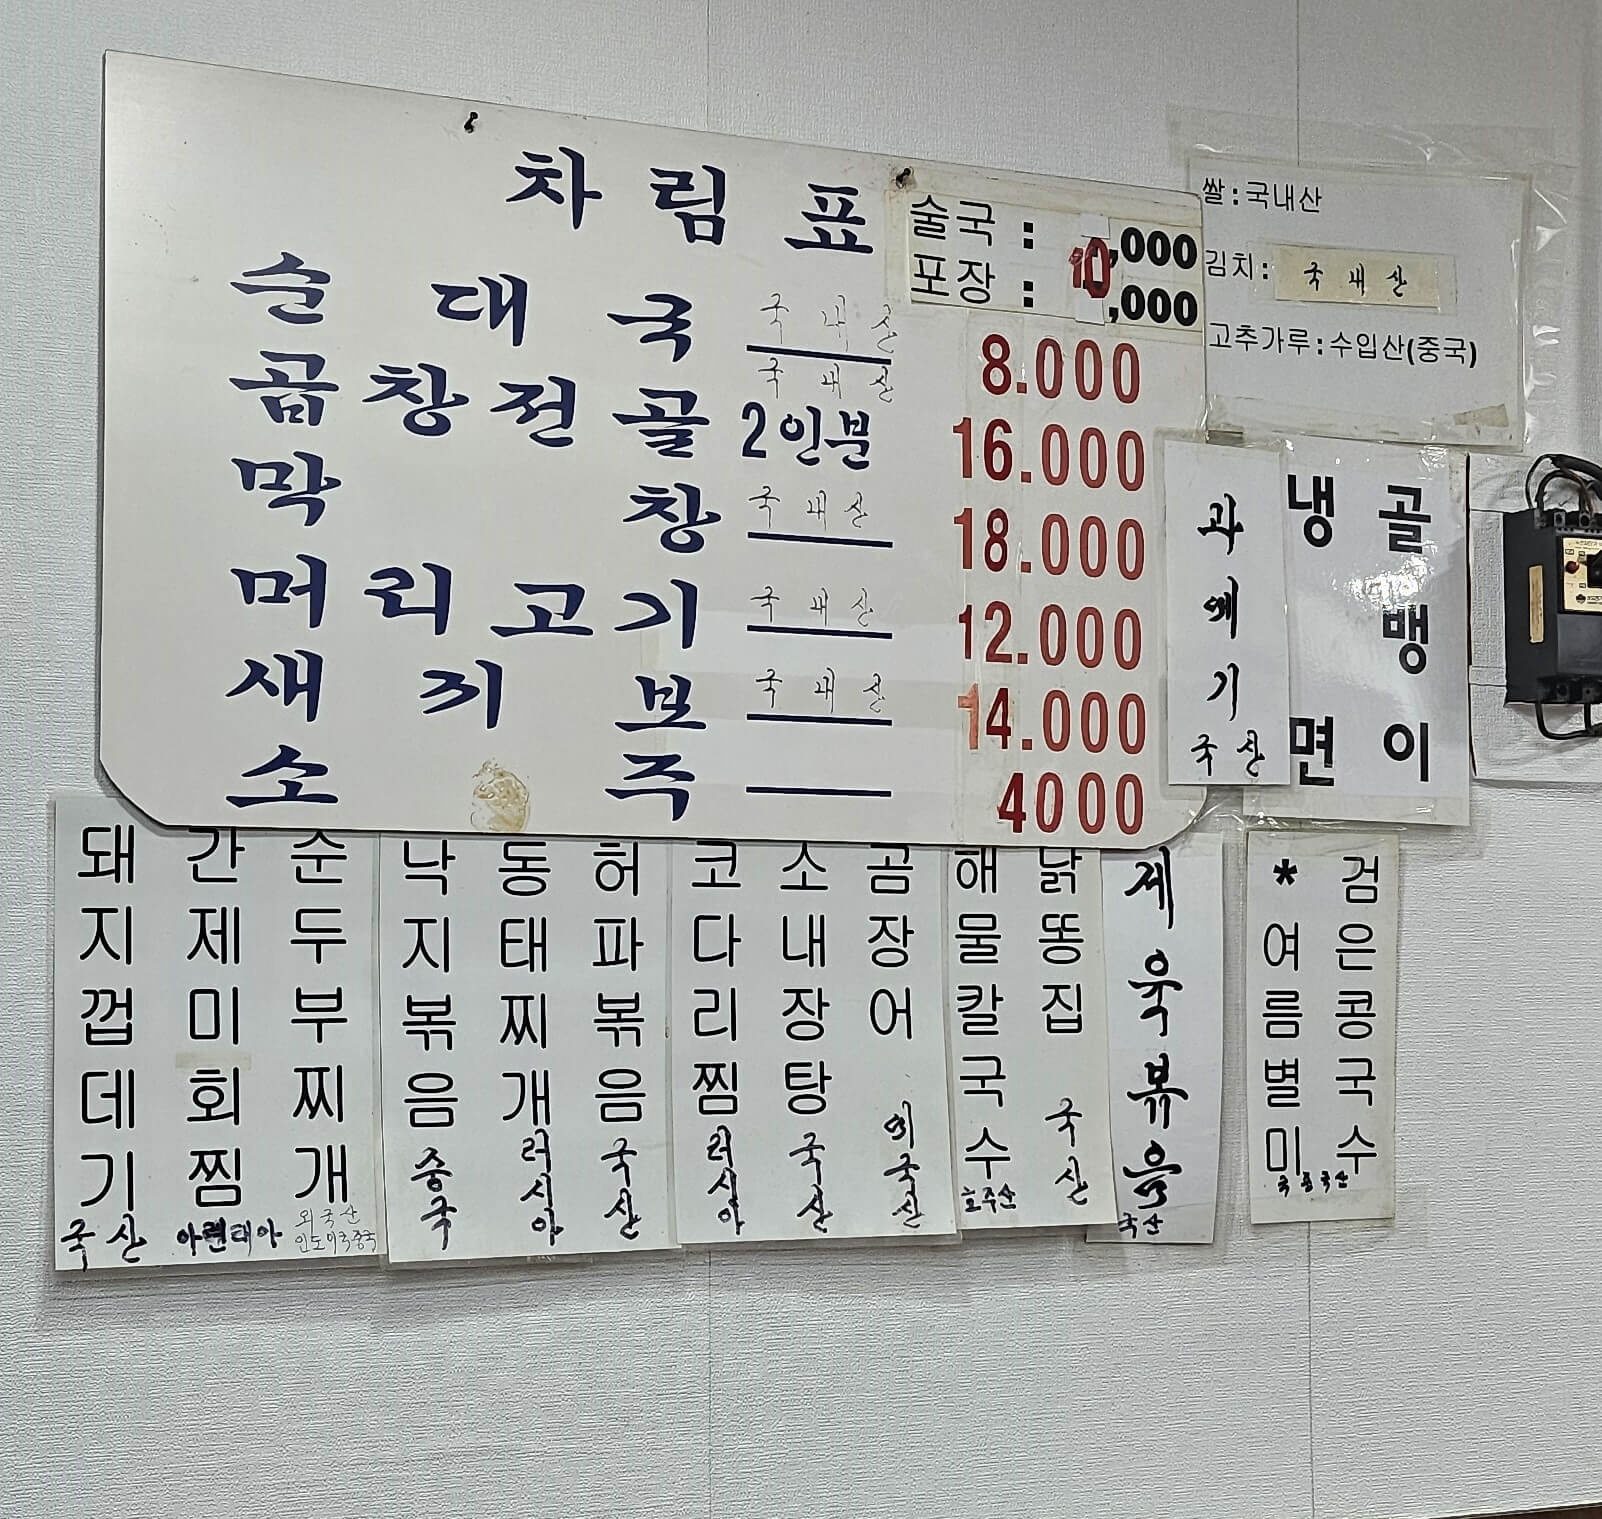 차림표
술국 : 10,000
포장 : 10,000
순대국 국내산 8.000
곱창전골 2인분 국내산 16.000
막창 국내산 18.000
머리고기 국내산 12.000
새끼보 국내산 14.000
소주 4000
쌀:국내산
김치: 국내산
고추가루:수입산(중국)
과메기 국산
냉면
골뱅이
돼지껍데기 국산
간제미회찜 아련태아
순두부찌개 외국산 인도미국중국
낙지볶음 중국
동태찌개 러시아
허파볶음 국산
코다리찜 러시아
소내장탕 국산
곰장어 미국산
해물칼국수 호주산
닭똥집 국산
제육볶음 국산
*여름별미
검은콩국수
국 중국산